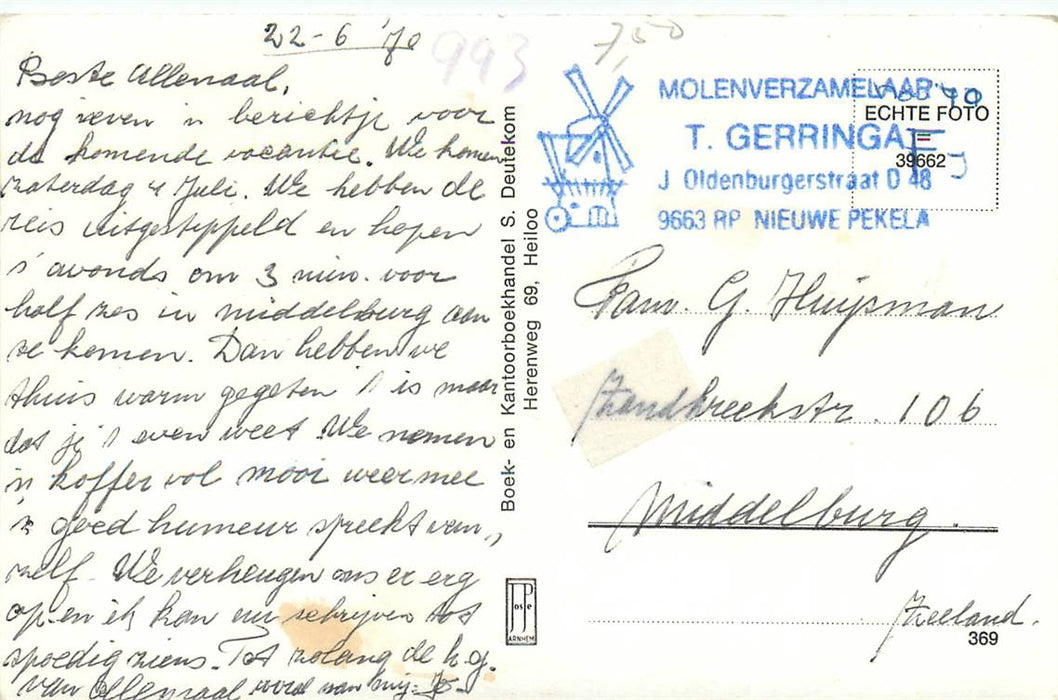 22-6 '70
993
7,50
Beste Allemaal,
nog even 'n berichtje voor
de komende vacantie. We komen
zaterdag 4 Juli. We hebben de
reis uitgestippeld en hopen
's avonds om 3 min. voor
half zes in middelburg aan
te komen. Dan hebben we
thuis warm gegeten 't is maar
dat je 't even weet. We nemen
'n koffer vol mooi weer mee
'n goed humeur spreekt van„
zelf. We verheugen ons er erg
op en ik kan nu schrijven tot
spoedig ziens. Tot zolang de h.g.
van allemaal
Boek- en Kantoorboekhandel S. Deutekom
Herenweg 69, Heiloo
JosPé
ARNHEM
MOLENVERZAMELAAR
T. GERRINGA
J Oldenburgerstraat D 48
9663 RP NIEUWE PEKELA
ECHTE FOTO
39662
Fam. G. Huijsman
Zandkreekstr. 106
Middelburg.
Zeeland.
369